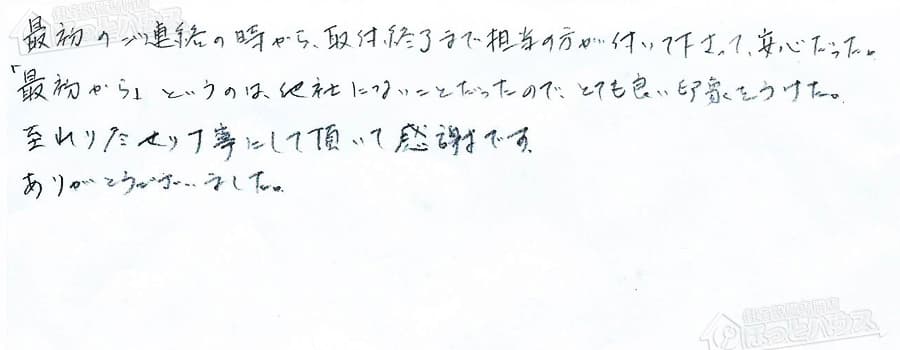 最初のご連絡の時から、取付終了まで担当の方が付いて下さって、安心だった。
「最初から」というのは、他社にないことだったので、とても良い印象をうけた。
至れりたせり丁寧にして頂いて感謝です。
ありがとうございました。
ほっとハウス